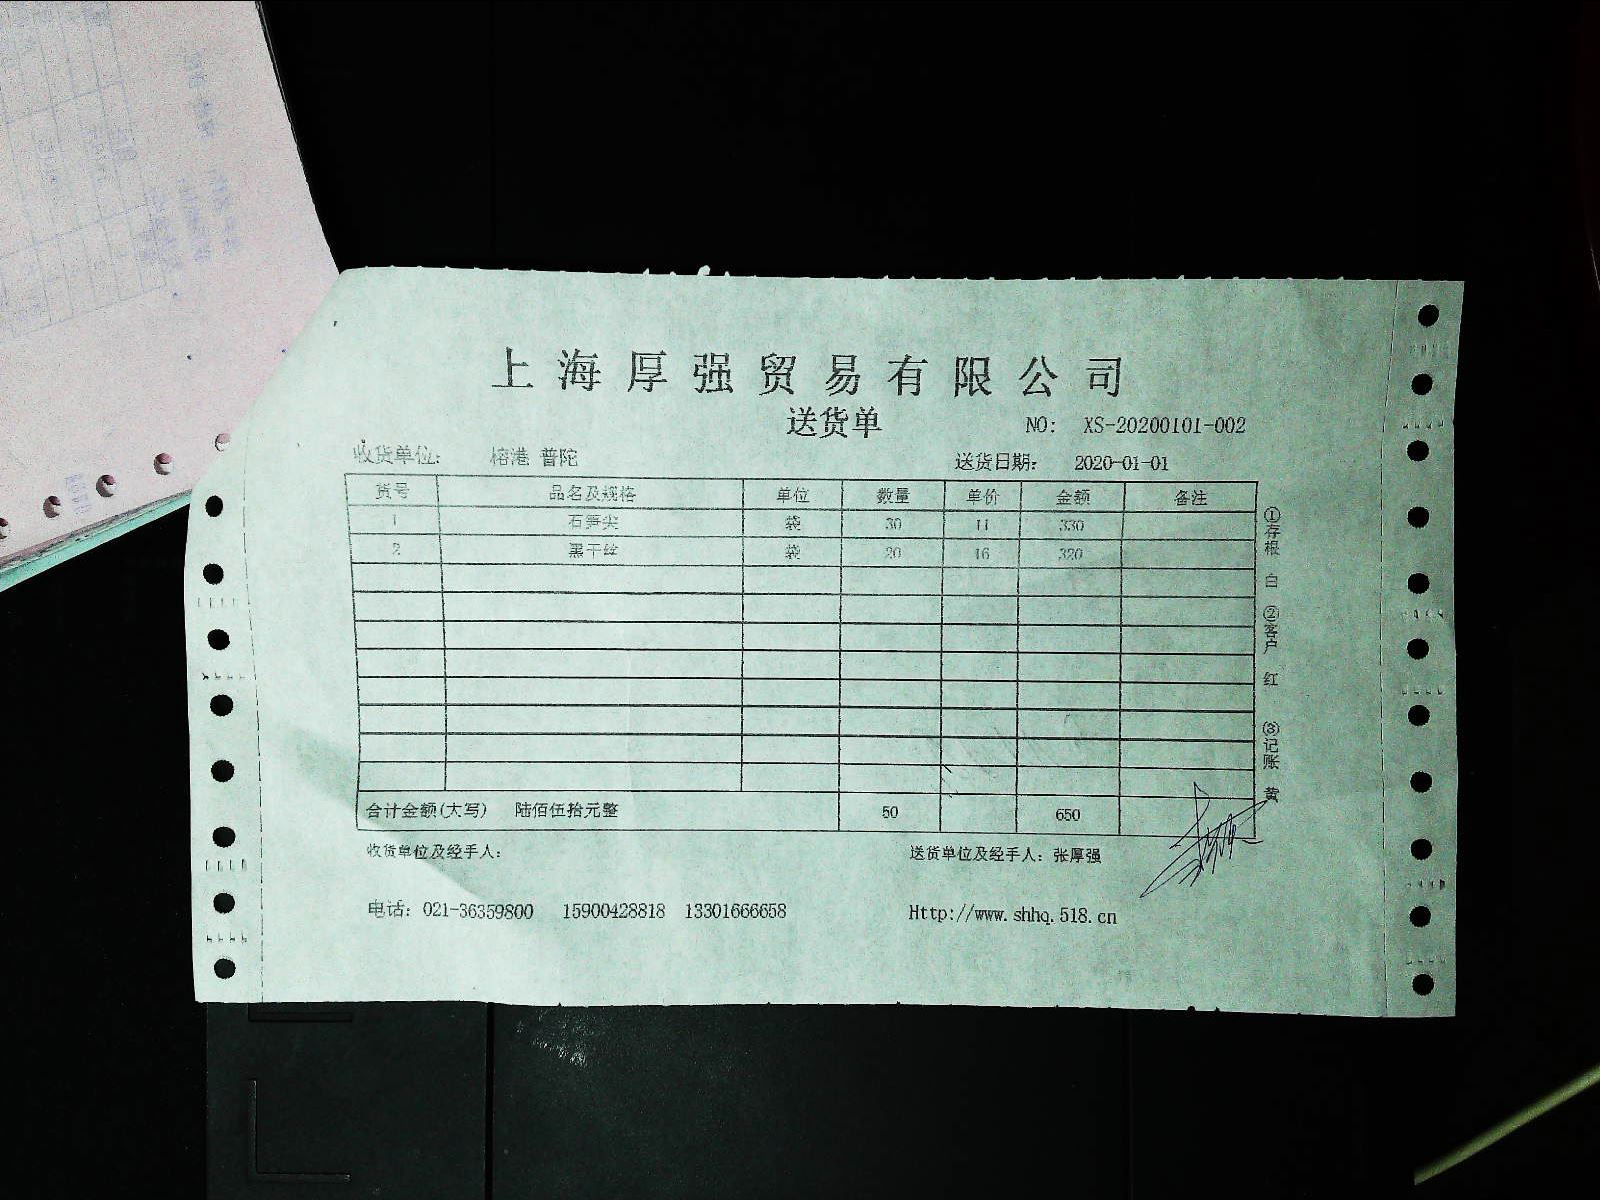 上海厚强贸易有限公司
送货单
NO: XS-20200101-002
收货单位: 榕港 普陀
送货日期: 2020-01-01
货号 品名及规格 单位 数量 单价 金额 备注
1 石笋尖 袋 30 11 330
2 黑干丝 袋 20 16 320
合计金额(大写) 陆佰伍拾元整 50 650
①存根 白 ②客户 红 ③记账 黄
收货单位及经手人:
送货单位及经手人: 张厚强
电话: 021-36359800 15900428818 13301666658
Http://www.shhq.518.cn